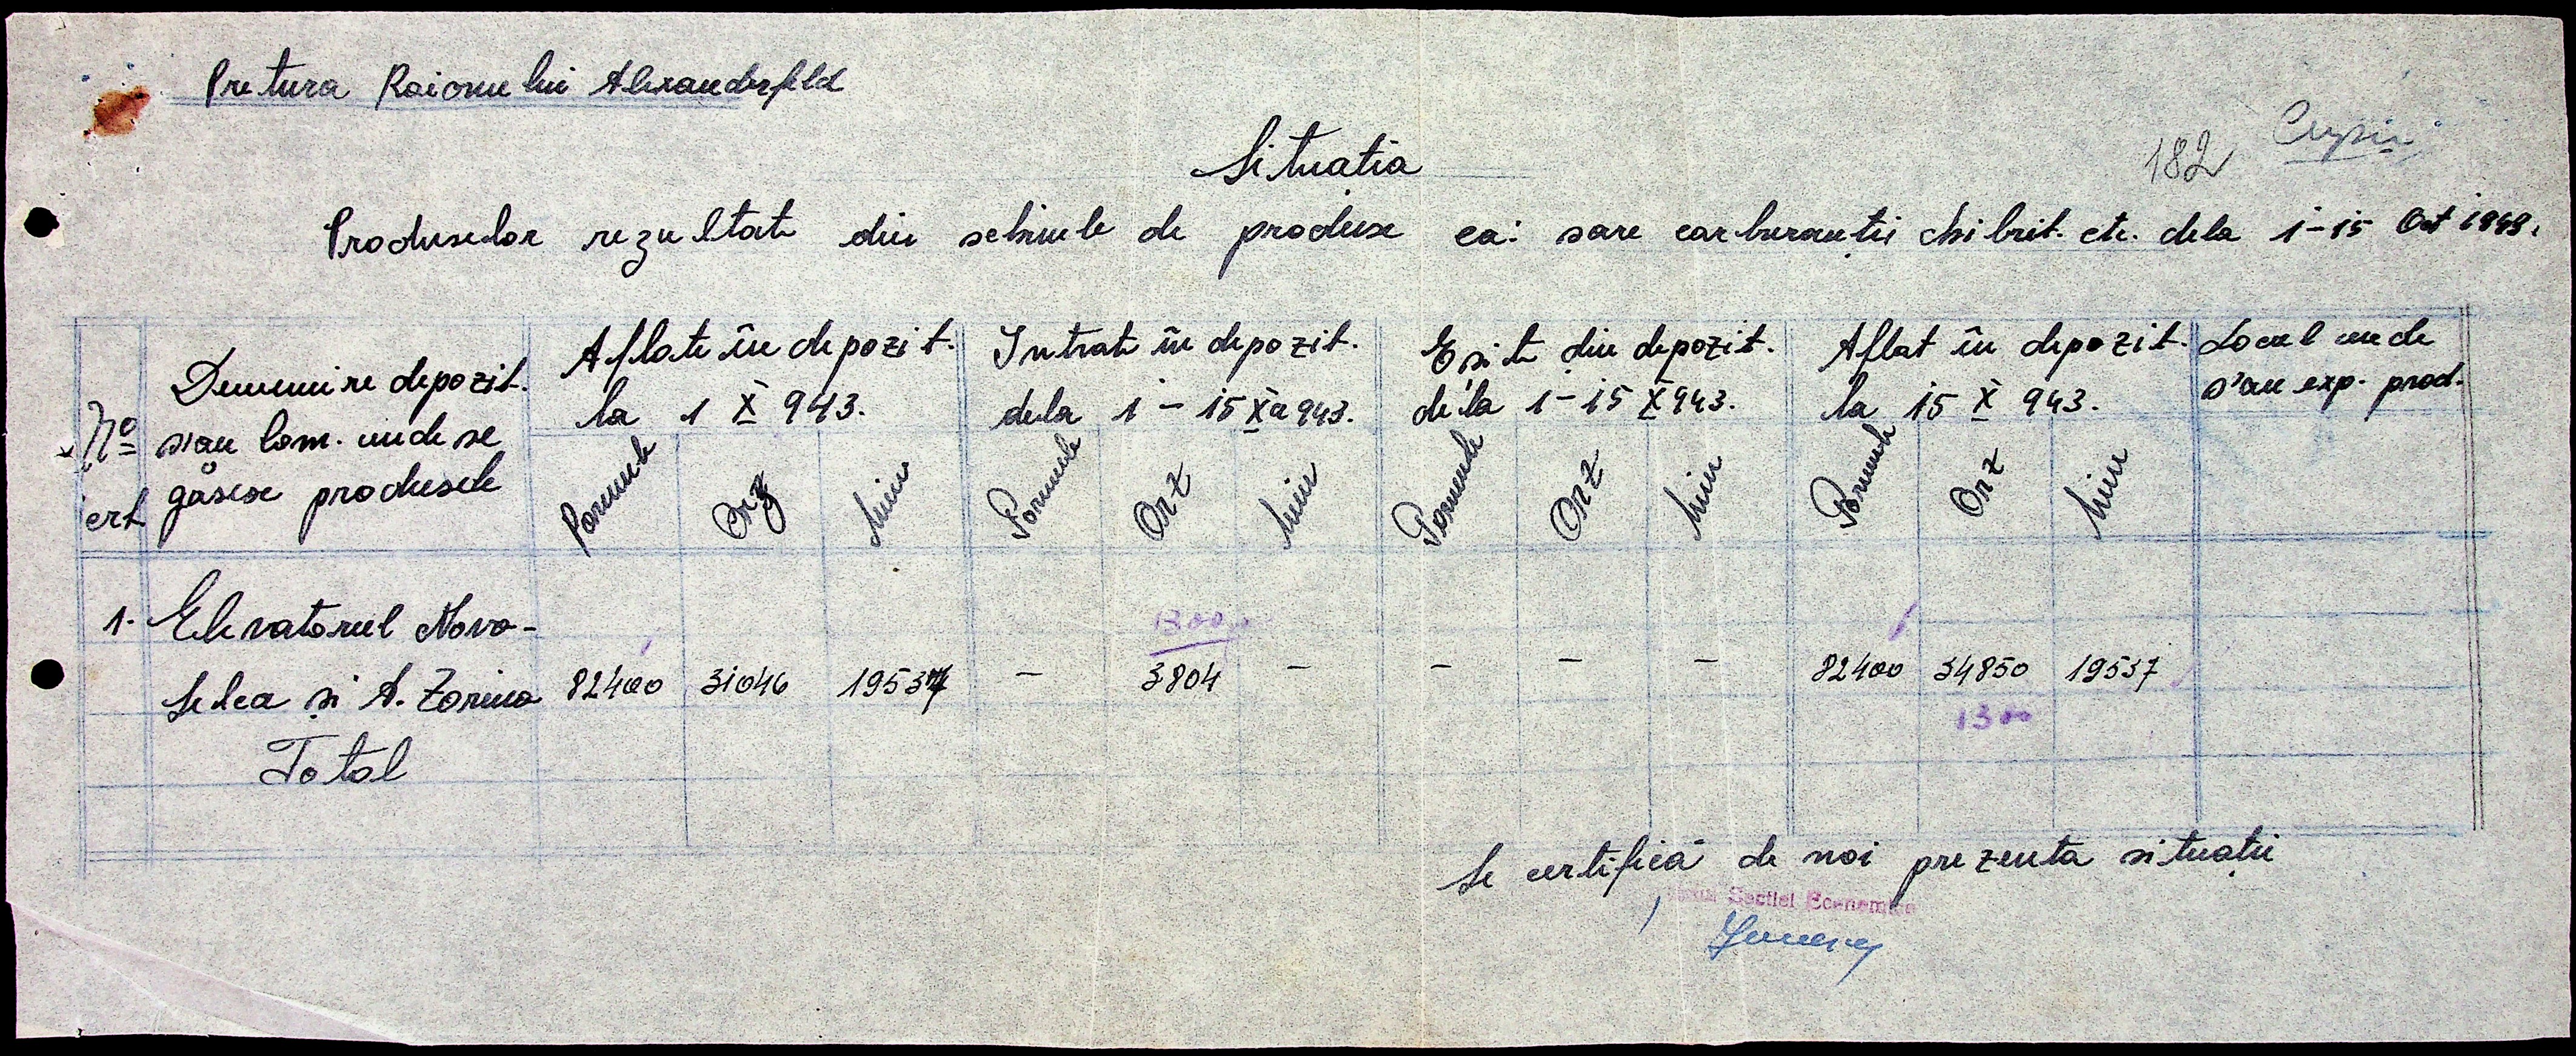 Pretura Raionului Alexanderfeld
182
Situatia
Produselor rezultate din schimb de produse ca: sare carburanții chibrit. etc. dela 1-15 Oct 1943.
No crt
Denumire depozit. s'au Com. unde se găsesc produsele
Aflate în depozit. la 1 X 943.
Intrate în depozit. dela 1 - 15 X a 943.
Esite din depozit. de la 1-15 X 943.
Aflat în depozit. la 15 X 943.
Locul unde s'au exp. prod.
Porumb Orz Porumb Orz Porumb Orz Porumb Orz
1300
1. Elevatorul Novo-
Selca și A. Zorina 82400 31046 19537 - 3804 - - - - 82400 34850 19537
1300
Total
Se certifică de noi prezenta situații
Sectiei Economice